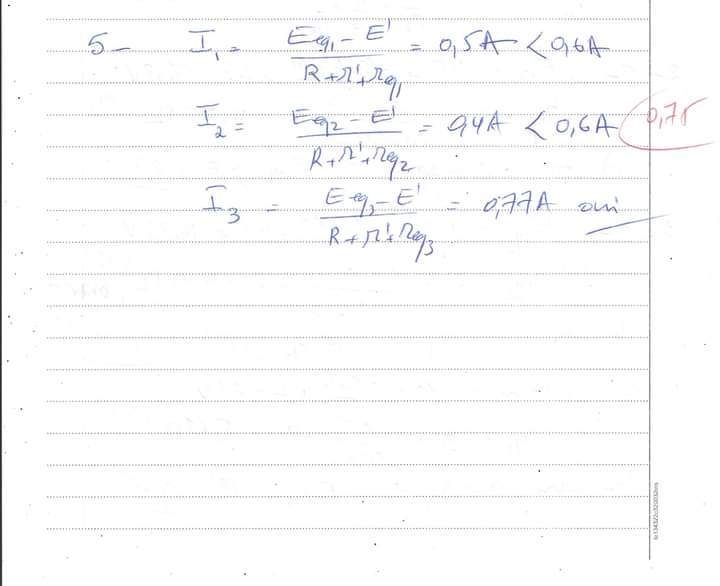 5- I₁ = (Eeq₁ - E') / (R + r' + req₁) = 0,5A < 0,6A
I₂ = (Eeq₂ - E') / (R + r' + req₂) = 0,4A < 0,6A 0,75
I₃ = (Eeq₃ - E') / (R + r' + req₃) = 0,77A oui